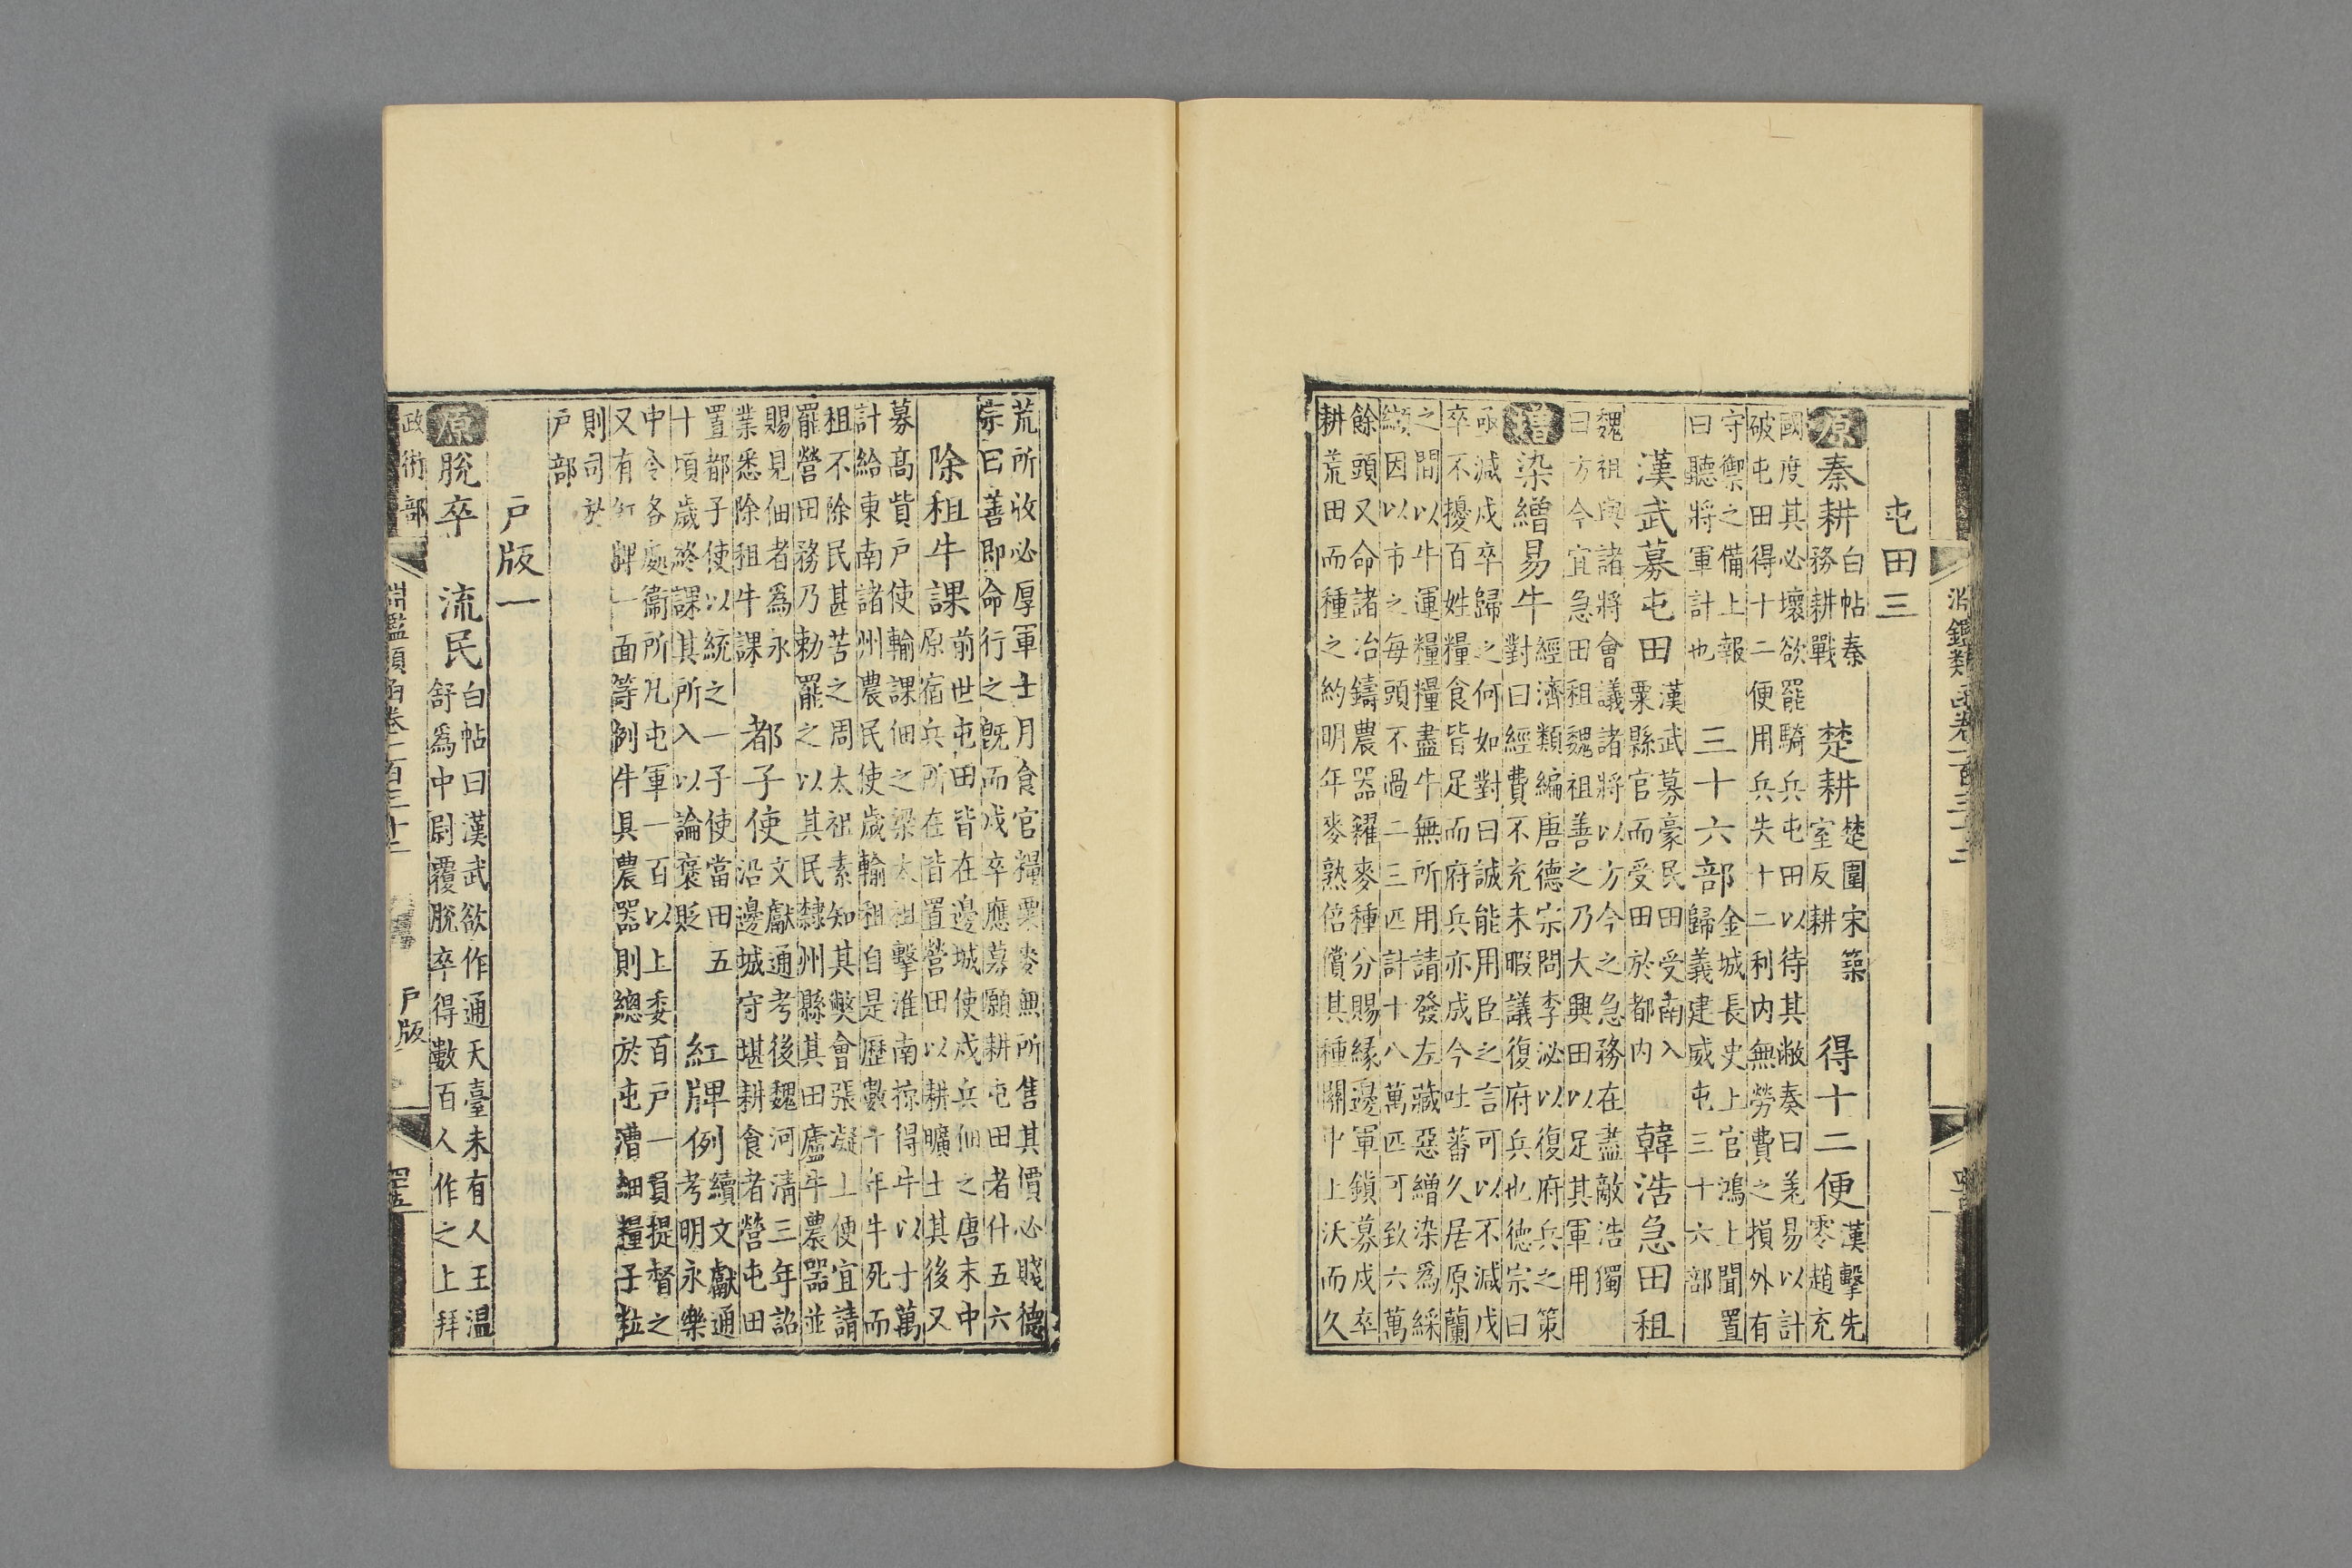 屯田三
原 秦耕 白帖秦
務耕戰 楚耕 楚圍宋築
室反耕 得十二便 漢擊先
零趙充
國度其必壞欲罷騎兵屯田以待其敝奏曰羌易以計
破屯田得十二便用兵失十二利内無勞費之損外有
守禦之備上報 三十六部 金城長史上官鴻上聞置
曰聽將軍計也 歸義建威屯三十六部
漢武募屯田 漢武募豪民田受南入
粟縣官而受田於都内 韓浩急田租
魏祖與諸將會議諸將以方今之急務在盡敵浩獨
曰方今宜急田租魏祖善之乃大興田以足其軍用
增 染繒易牛 經濟類編唐德宗問李泌以復府兵之策
對曰經費不充未暇議復府兵也德宗曰
亟減戍卒歸之何如對曰誠能用臣之言可以不減戍
卒不擾百姓糧食皆足而府兵亦成今吐蕃久居原蘭
之間以牛運糧糧盡牛無所用請發左藏惡繒染爲綵
纈因以市之每頭不過二三匹計十八萬匹可致六萬
餘頭又命諸冶鑄農器糴麥種分賜緣邊軍鎮募戍卒
耕荒田而種之約明年麥熟倍償其種關中土沃而久
荒所收必厚軍士月食官糧粟麥無所售其價必賤德
宗曰善即命行之既而戍卒應募願耕屯田者什五六
除租牛課 前世屯田皆在邊城使戍兵佃之唐末中
原宿兵所在皆置營田以耕曠土其後又
募高貲戶使輸課佃之梁太祖擊淮南掠得牛以十萬
計給東南諸州農民使歲輸租自是歷數十年牛死而
租不除民甚苦之周太祖素知其獘會張凝上便宜請
罷營田務乃勅罷之以其民隸州縣其田廬牛農器並
賜見佃者爲永
業悉除租牛課 都子使 文獻通考後魏河清三年詔
沿邊城守堪耕食者營屯田
置都子使以統之一子使當田五
十頃歲終課其所入以論褒貶 紅牌例 續文獻通
考明永樂
中令各處衞所凡屯軍一百以上委百戶一員提督之
又有紅牌一面等例牛具農器則總於屯漕細糧子粒
則司於
戶部
戶版一
原 脫卒 流民 白帖曰漢武欲作通天臺未有人王温
舒爲中尉覆脫卒得數百人作之上拜
政術部 淵鑑類函卷一百三十二 戶版